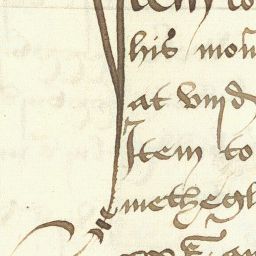 Item to
his mon
at viijd
Item to
methegl